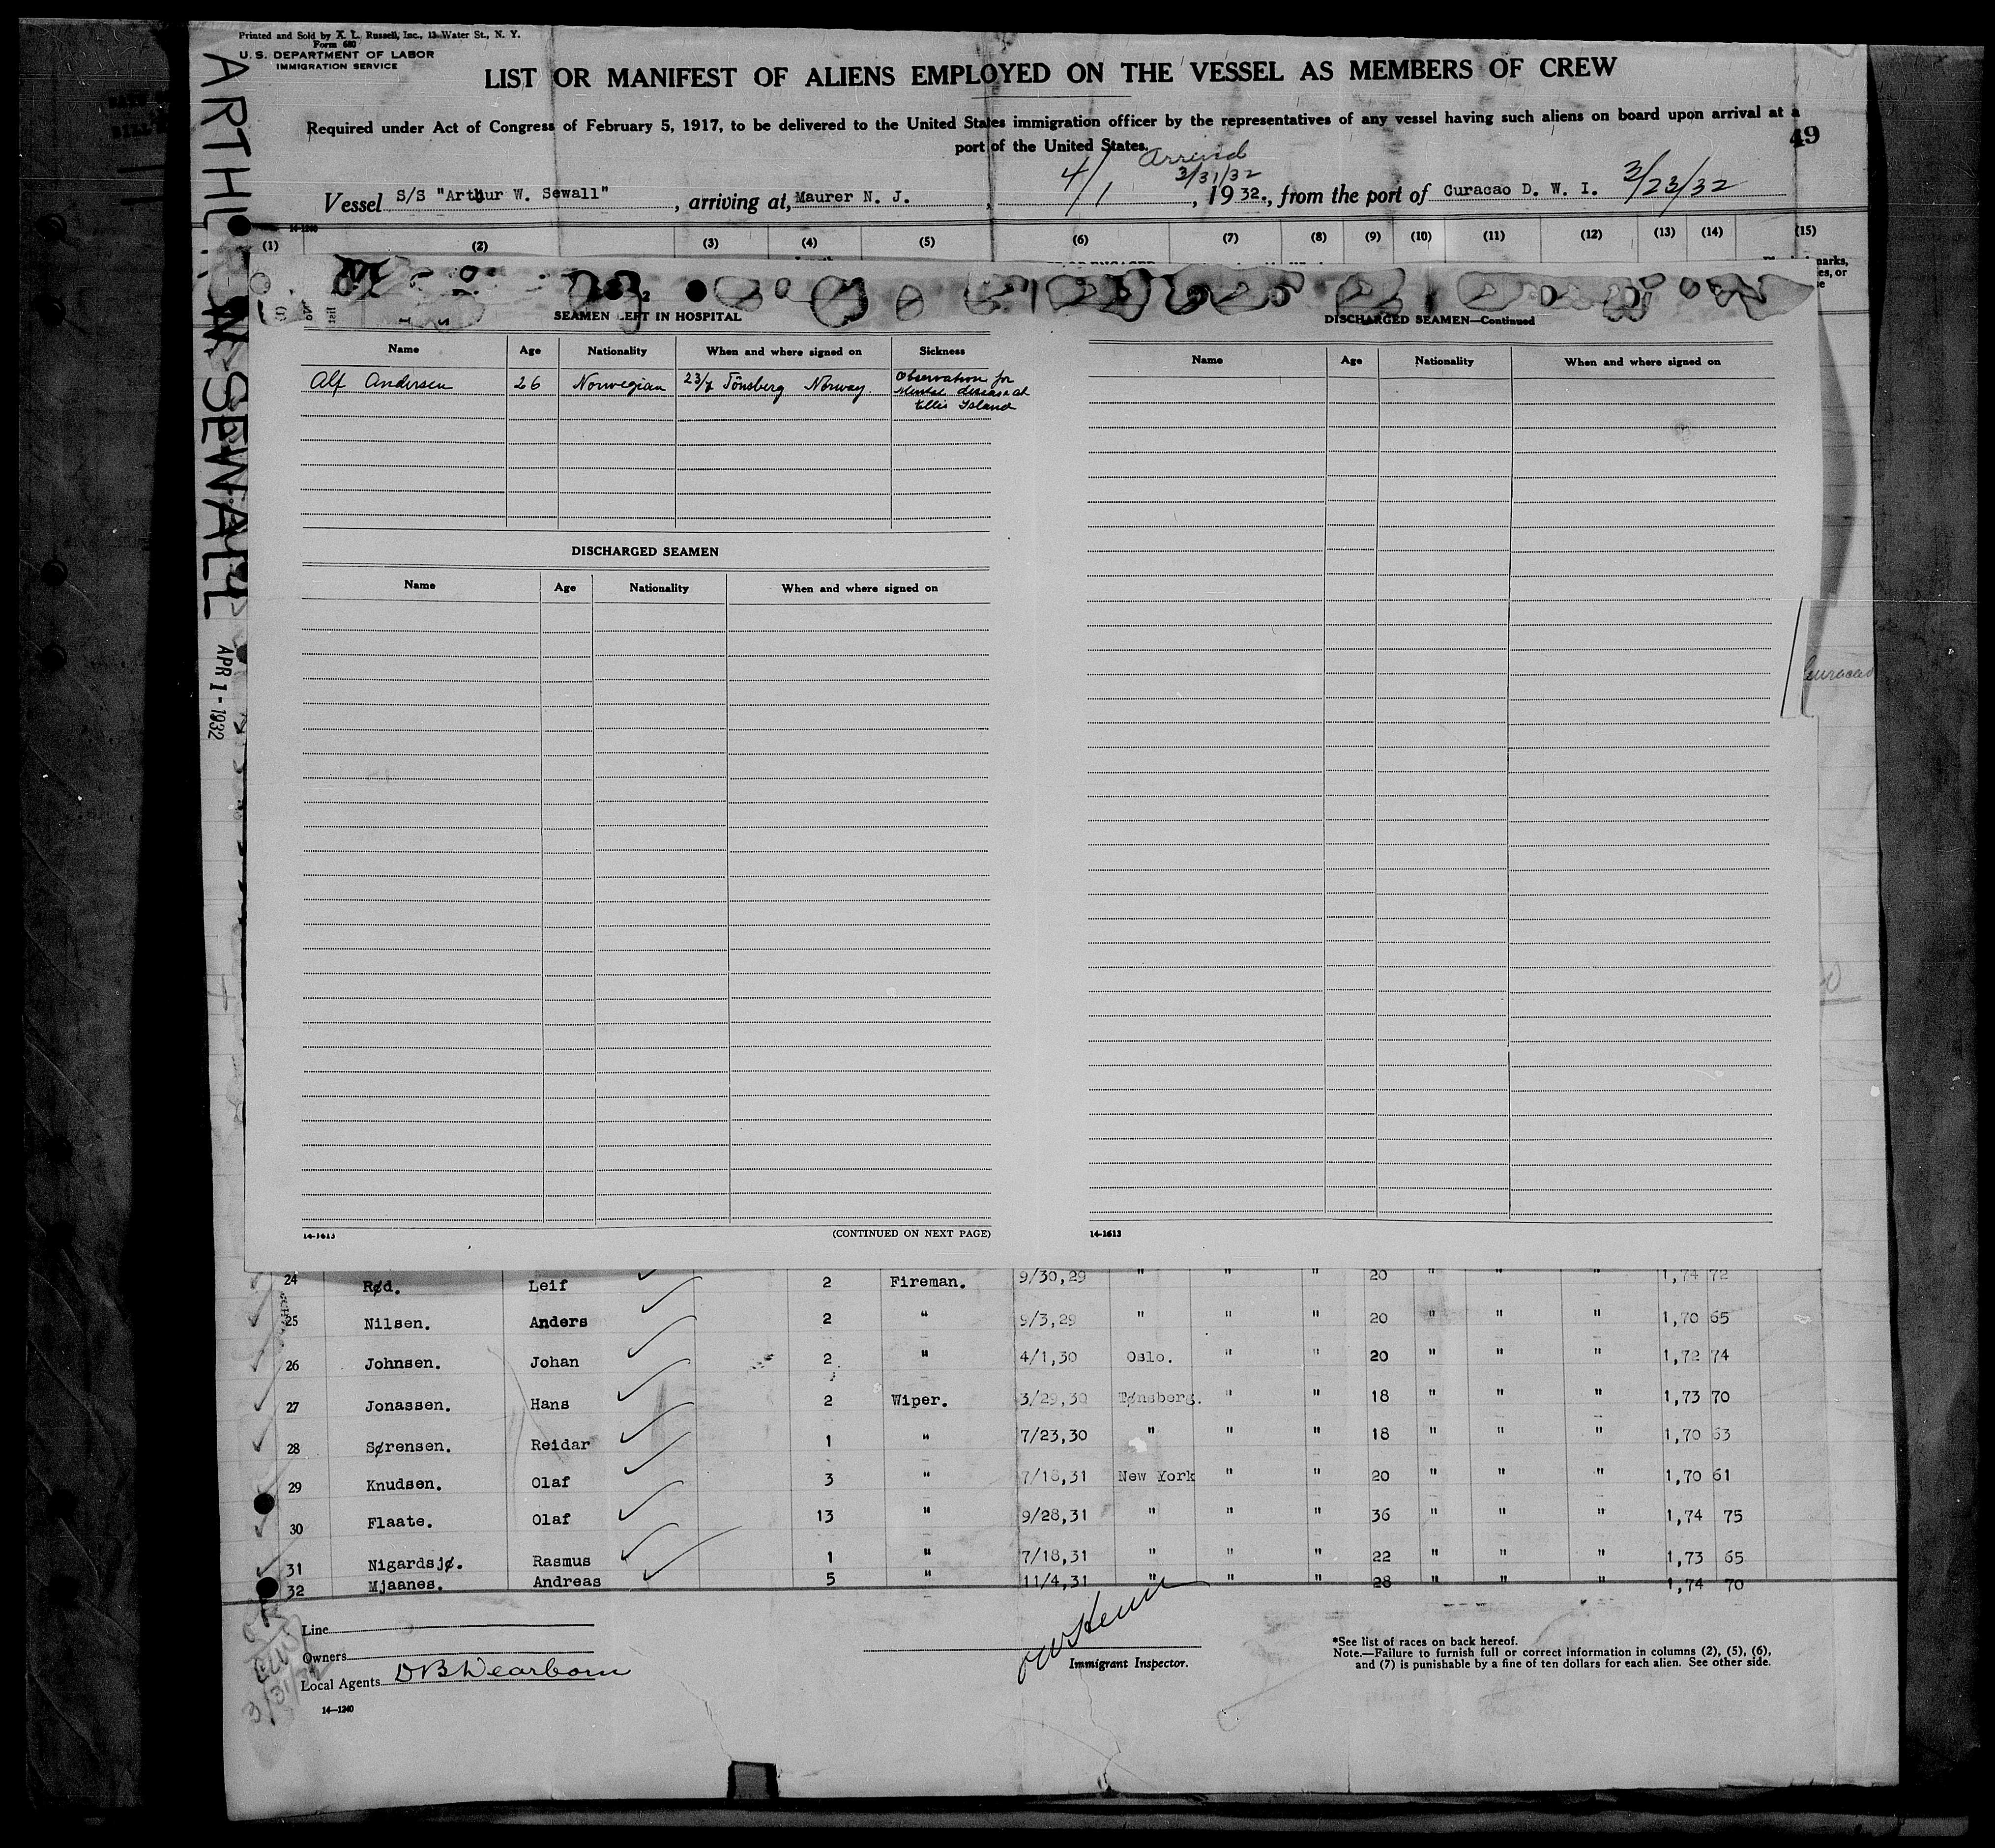 Printed and Sold by A. L. Russell, Inc., 13 Water St., N. Y.
Form 680
U. S. DEPARTMENT OF LABOR
IMMIGRATION SERVICE
LIST OR MANIFEST OF ALIENS EMPLOYED ON THE VESSEL AS MEMBERS OF CREW
Required under Act of Congress of February 5, 1917, to be delivered to the United States immigration officer by the representatives of any vessel having such aliens on board upon arrival at a
port of the United States.
49
Arrived
3/31/32
Vessel S/S "Arthur W. Sewall", arriving at, Maurer N. J., 4/1, 1932., from the port of Curacao D. W. I. 3/23/32
14-1240
(1) (2) (3) (4) (5) (6) (7) (8) (9) (10) (11) (12) (13) (14) (15)
W. SEWALL
APR 1 - 1932
SEAMEN LEFT IN HOSPITAL
Name Age Nationality When and where signed on Sickness
Alf Andersen 26 Norwegian 23/7 Tönsberg Norway. Observation for
Mental disease at
Ellis Island
DISCHARGED SEAMEN
Name Age Nationality When and where signed on
(CONTINUED ON NEXT PAGE)
14-1613
DISCHARGED SEAMEN—Continued
Name Age Nationality When and where signed on
14-1613
Curacao
24 Rød. Leif 2 Fireman. 9/30,29 " " " 20 " " " 1,74 72
25 Nilsen. Anders 2 " 9/3,29 " " " 20 " " " 1,70 65
26 Johnsen. Johan 2 " 4/1,30 Oslo. " " 20 " " " 1,72 74
27 Jonassen. Hans 2 Wiper. 3/29,30 Tønsberg. " " 18 " " " 1,73 70
28 Sørensen. Reidar 1 " 7/23,30 " " " 18 " " " 1,70 63
29 Knudsen. Olaf 3 " 7/18,31 New York " " 20 " " " 1,70 61
30 Flaate. Olaf 13 " 9/28,31 " " " 36 " " " 1,74 75
31 Nigardsjø. Rasmus 1 " 7/18,31 " " " 22 " " " 1,73 65
32 Mjaanes. Andreas 5 " 11/4,31 " " " 28 " " " 1,74 70
Line
Owners
Local Agents D B Dearborn
14—1240
3/31/32
Immigrant Inspector.
*See list of races on back hereof.
Note.—Failure to furnish full or correct information in columns (2), (5), (6),
and (7) is punishable by a fine of ten dollars for each alien. See other side.